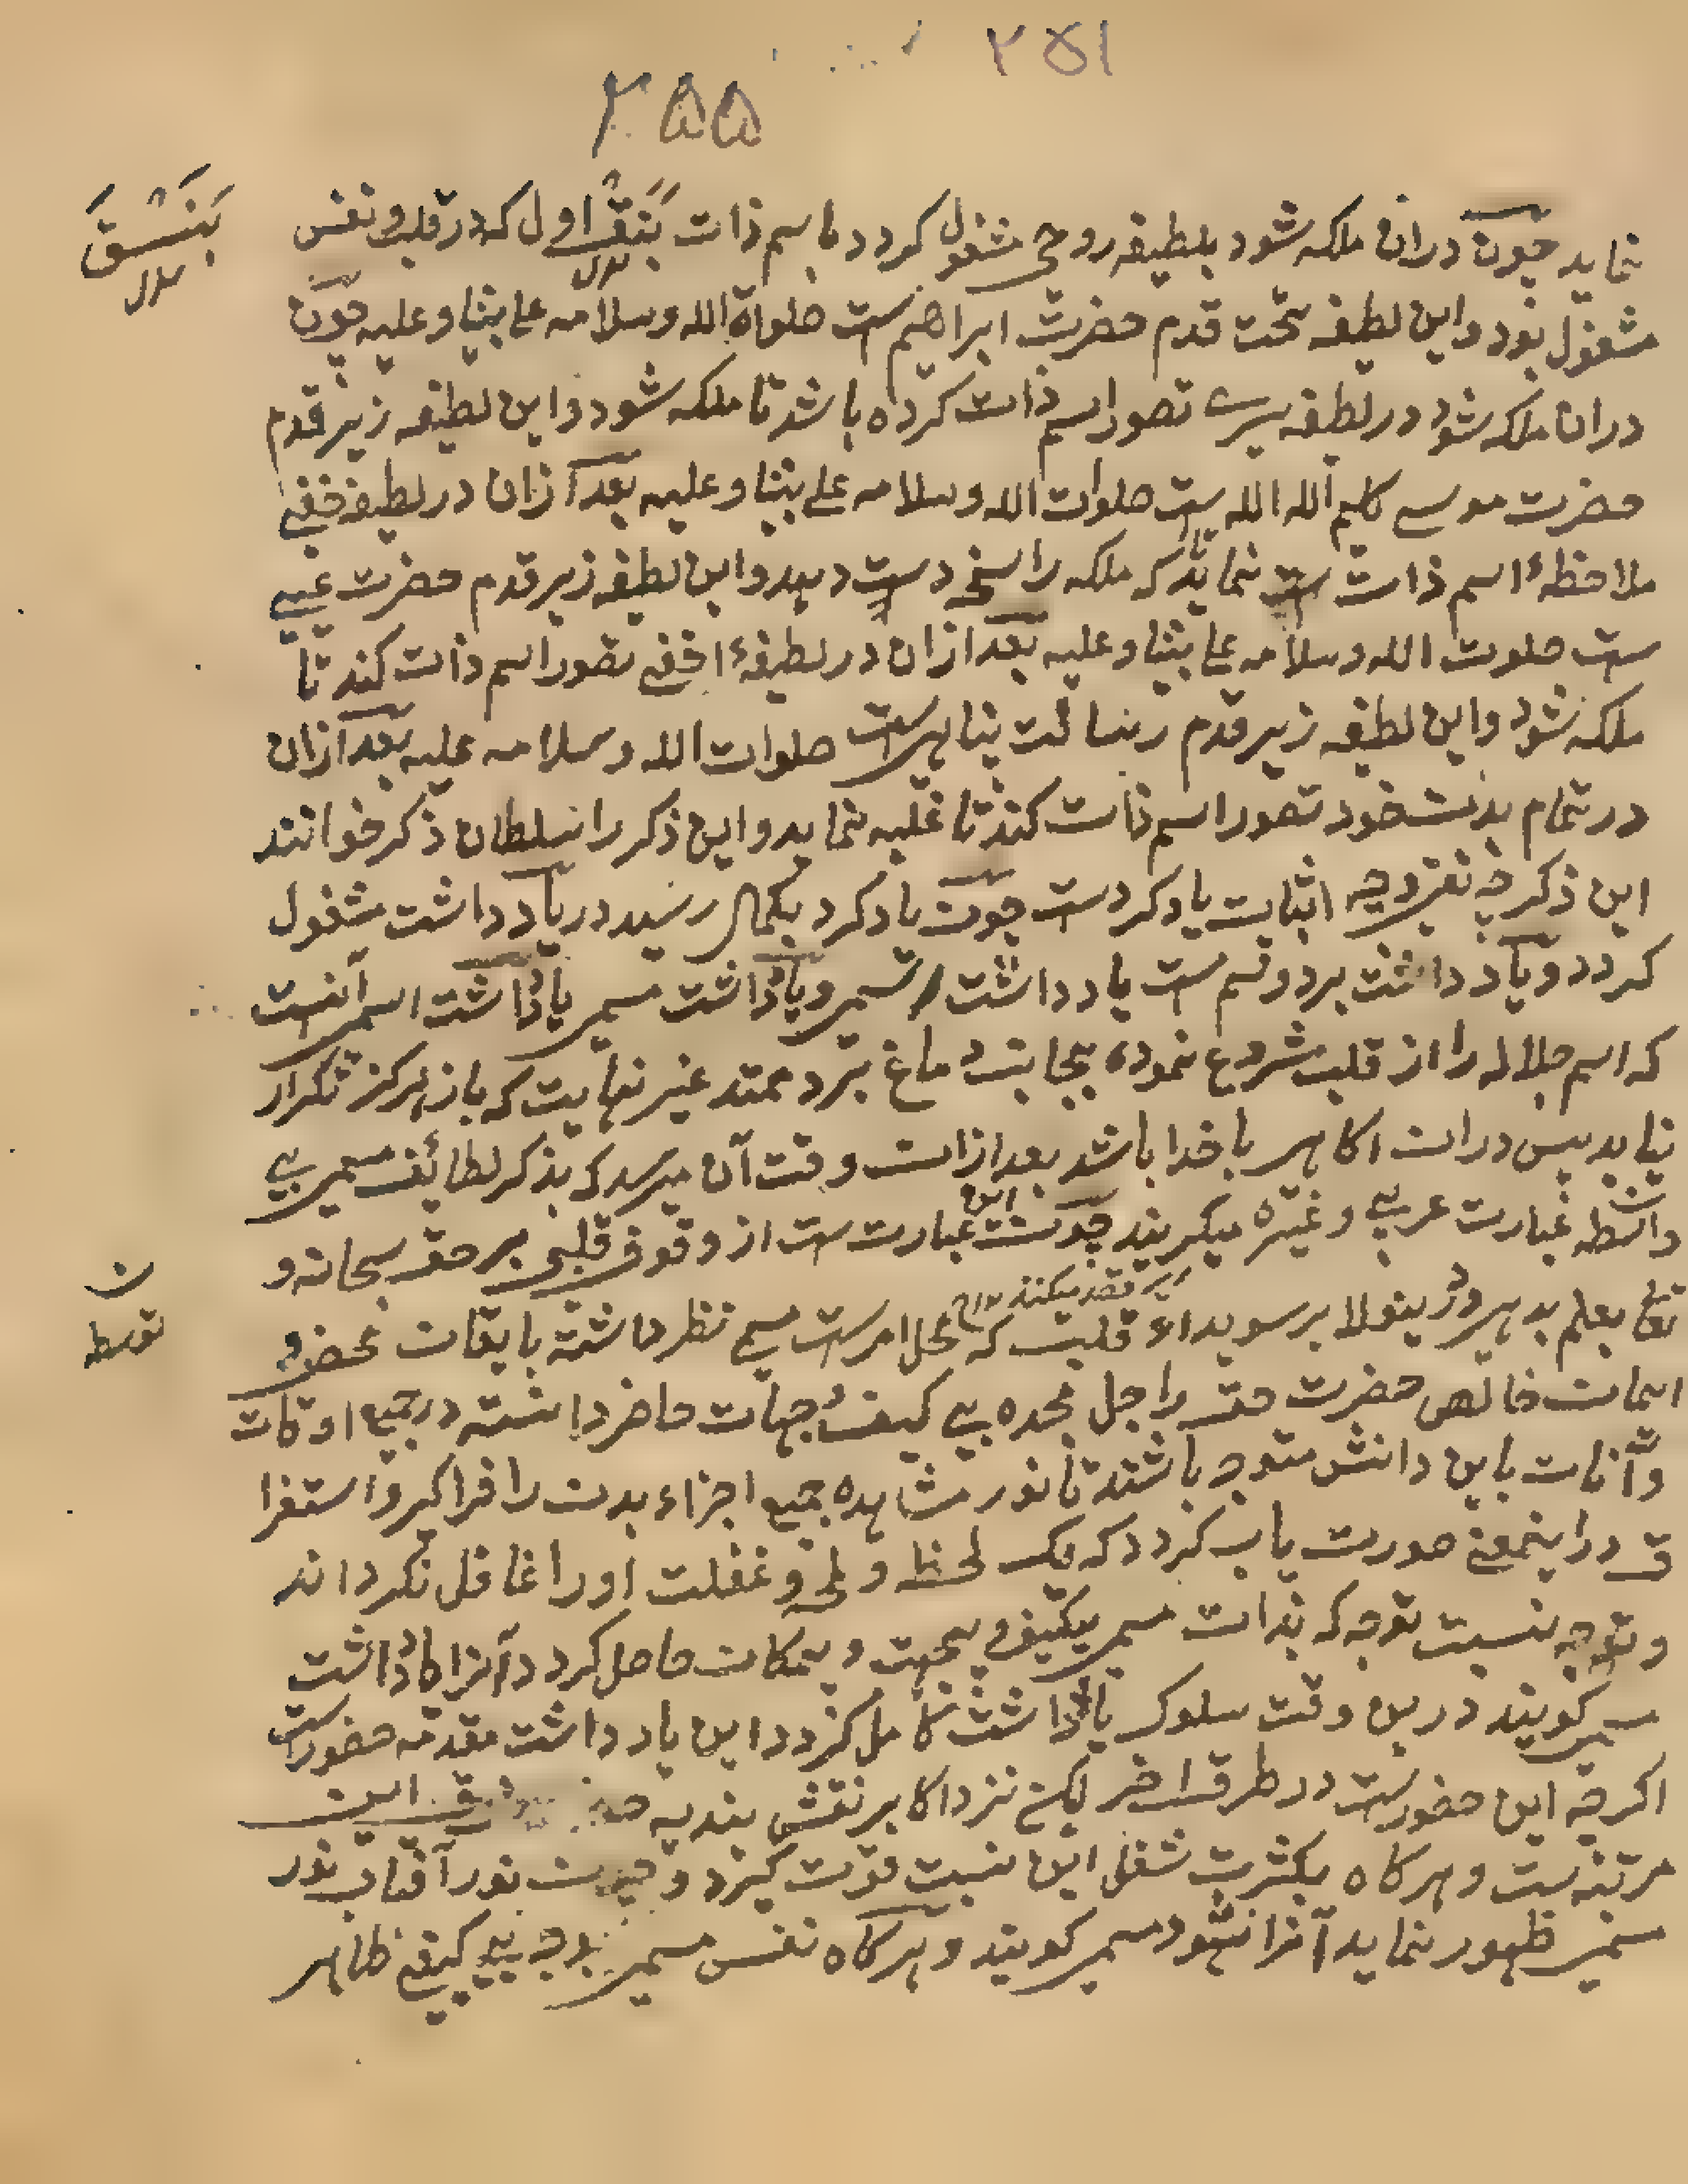 ۲۵۱
۲۵۵
نماید چون دران ملکه شود بلطیفه روحی مشغول کردد باسم ذات بنسق اول که در قلب و نفس
بَنَسْقَ
بدل
مشغول بود و این لطیفه تحت قدم حضرت ابراهیم ست صلواة الله وسلامه علی نبینا و علیه چون
دران ملکه شود در لطیفه سری تصور اسم ذات کرده باشد تا ملکه شود و این لطیفه زیر قدم
حضرت موسی کلیم الله الله ست صلوات الله وسلامه علی نبینا و علیه بعد ازان در لطیفه خفی
ملاحظهٔ اسم ذات ست نماید که ملکه راسخه دست دهد و این لطیفه زیر قدم حضرت عیسی
ست صلوت الله وسلامه علی نبینا و علیه بعد ازان در لطیفهٔ اخفی تصور اسم ذات کند تا
ملکه شود و این لطیفه زیر قدم رسالت پناهی ست صلوات الله وسلامه علیه بعد ازان
در تمام بدن خود تصور اسم ذات کند تا غلبه نماید و این ذکر را سلطان ذکر خوانند
این ذکر چه نفی و چه اثبات یاد کردست چون یاد کرد بکمال رسید در یاد داشت مشغول
کردد و یاد داشت بر دو قسم ست یاد داشت اسمی و یادداشت مسمی یادداشت اسمی آنست
که اسم جلاله را از قلب شروع نموده بجانب دماغ برد ممتد غیر نهایت که باز هرگز تکرار
نیاید پس دران اکاهی با خدا باشد بعد ازان وقت آن میرسد که بذکر لطائف مسمی بی
واسطه عبارت عربی و غیره میکریند چون این عبارت ست از وقوف قلبی بر حق سبحانه و
ن
توسط
تع بعلم بدیهی و ژینولا بر سویداء قلب که محل امر ست مسمی نظر داشته بایقان محض و
قصد میکنند
ایمان خالص حضرت حق را جل مجده بی کیف و جهات حاضر دانسته در جمیع اوقات
و آنات باین دانش متوجه باشند تا نور مشاهده جمیع اجزاء بدن را فرا گیرد استغرا
ق در اینمعنی صورت یاب کردد که یک لحظه و لمحه و غفلت اورا غافل نکرداند
و توجه بنسبت توجه که بذات مسمی بیکیف و بیجهت و بیمکان حاصل کردد آنرا یادداشت
مسمی کویند درین وقت سلوک یادداشت کامل کردد این یاد داشت مقدمه حضورست
اکرچه این حضورست در طرق اخر لیکن نزد اکابر نقش بندیه این
مرتبه ست و هرکاه بکثرت شغل این نسبت قوت کیرد و نور آفتاب نور
مسمی ظهور نماید آنرا شهود مسمی کویند و هرکاه نفس مسمی بوجه بی کیفی ظاهر